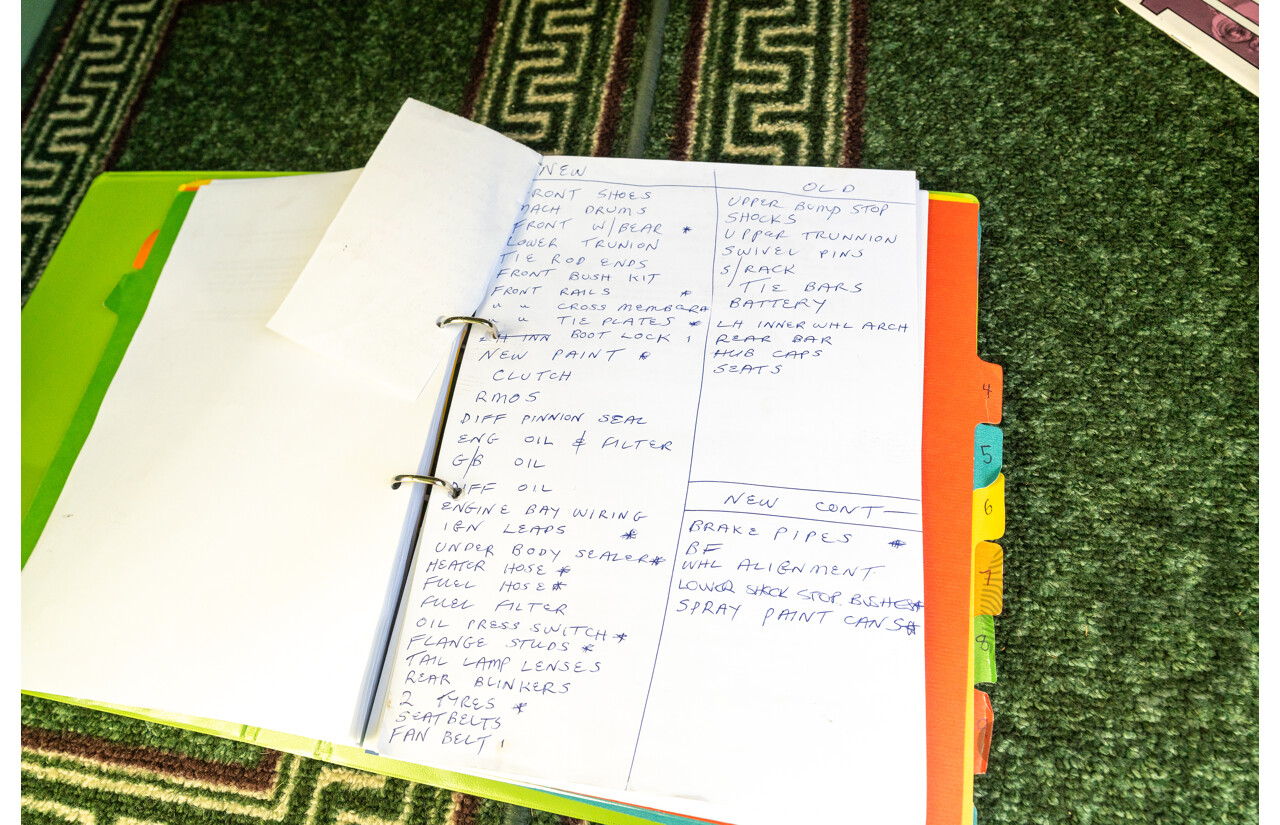 NEW
RONT SHOES
MACH DRUMS
FRONT W/BEAR *
LOWER TRUNION
TIE ROD ENDS
FRONT BUSH KIT
FRONT RAILS *
" " CROSS MEMBER *
" " TIE PLATES *
LH INN BOOT LOCK 1
NEW PAINT *
CLUTCH
RMOS
DIFF PINNION SEAL
ENG OIL & FILTER
G/B OIL
DIFF OIL
ENGINE BAY WIRING
IGN LEADS *
UNDER BODY SEALER *
HEATER HOSE *
FUEL HOSE *
FUEL FILTER
OIL PRESS SWITCH *
FLANGE STUDS *
TAIL LAMP LENSES
REAR BLINKERS
2 TYRES *
SEATBELTS
FAN BELT 1
OLD
UPPER BUMP STOP
SHOCKS
UPPER TRUNNION
SWIVEL PINS
S/RACK
TIE BARS
BATTERY
LH INNER WHL ARCH
REAR BAR
HUB CAPS
SEATS
NEW CONT
BRAKE PIPES *
BF
WHL ALIGNMENT
LOWER SHCK STOP. BUSHES *
SPRAY PAINT CANS *
4
5
6
7
8